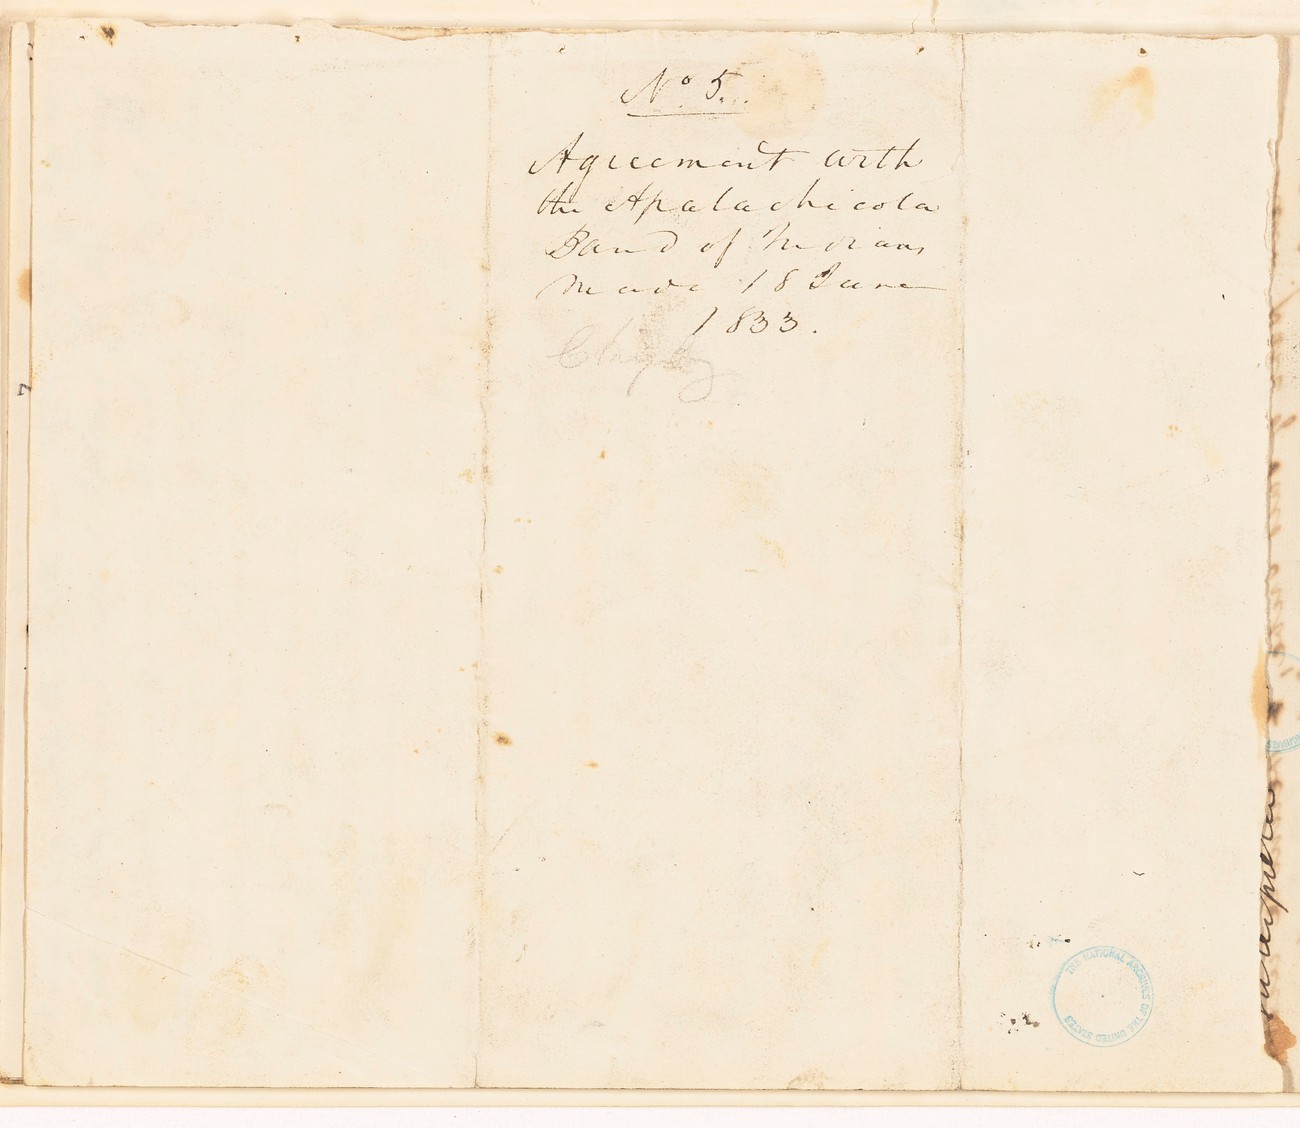 No. 5.
Agreement with
the Apalachicola
Band of Indians
made 18 June
1833.
THE NATIONAL ARCHIVES OF THE UNITED STATES
7